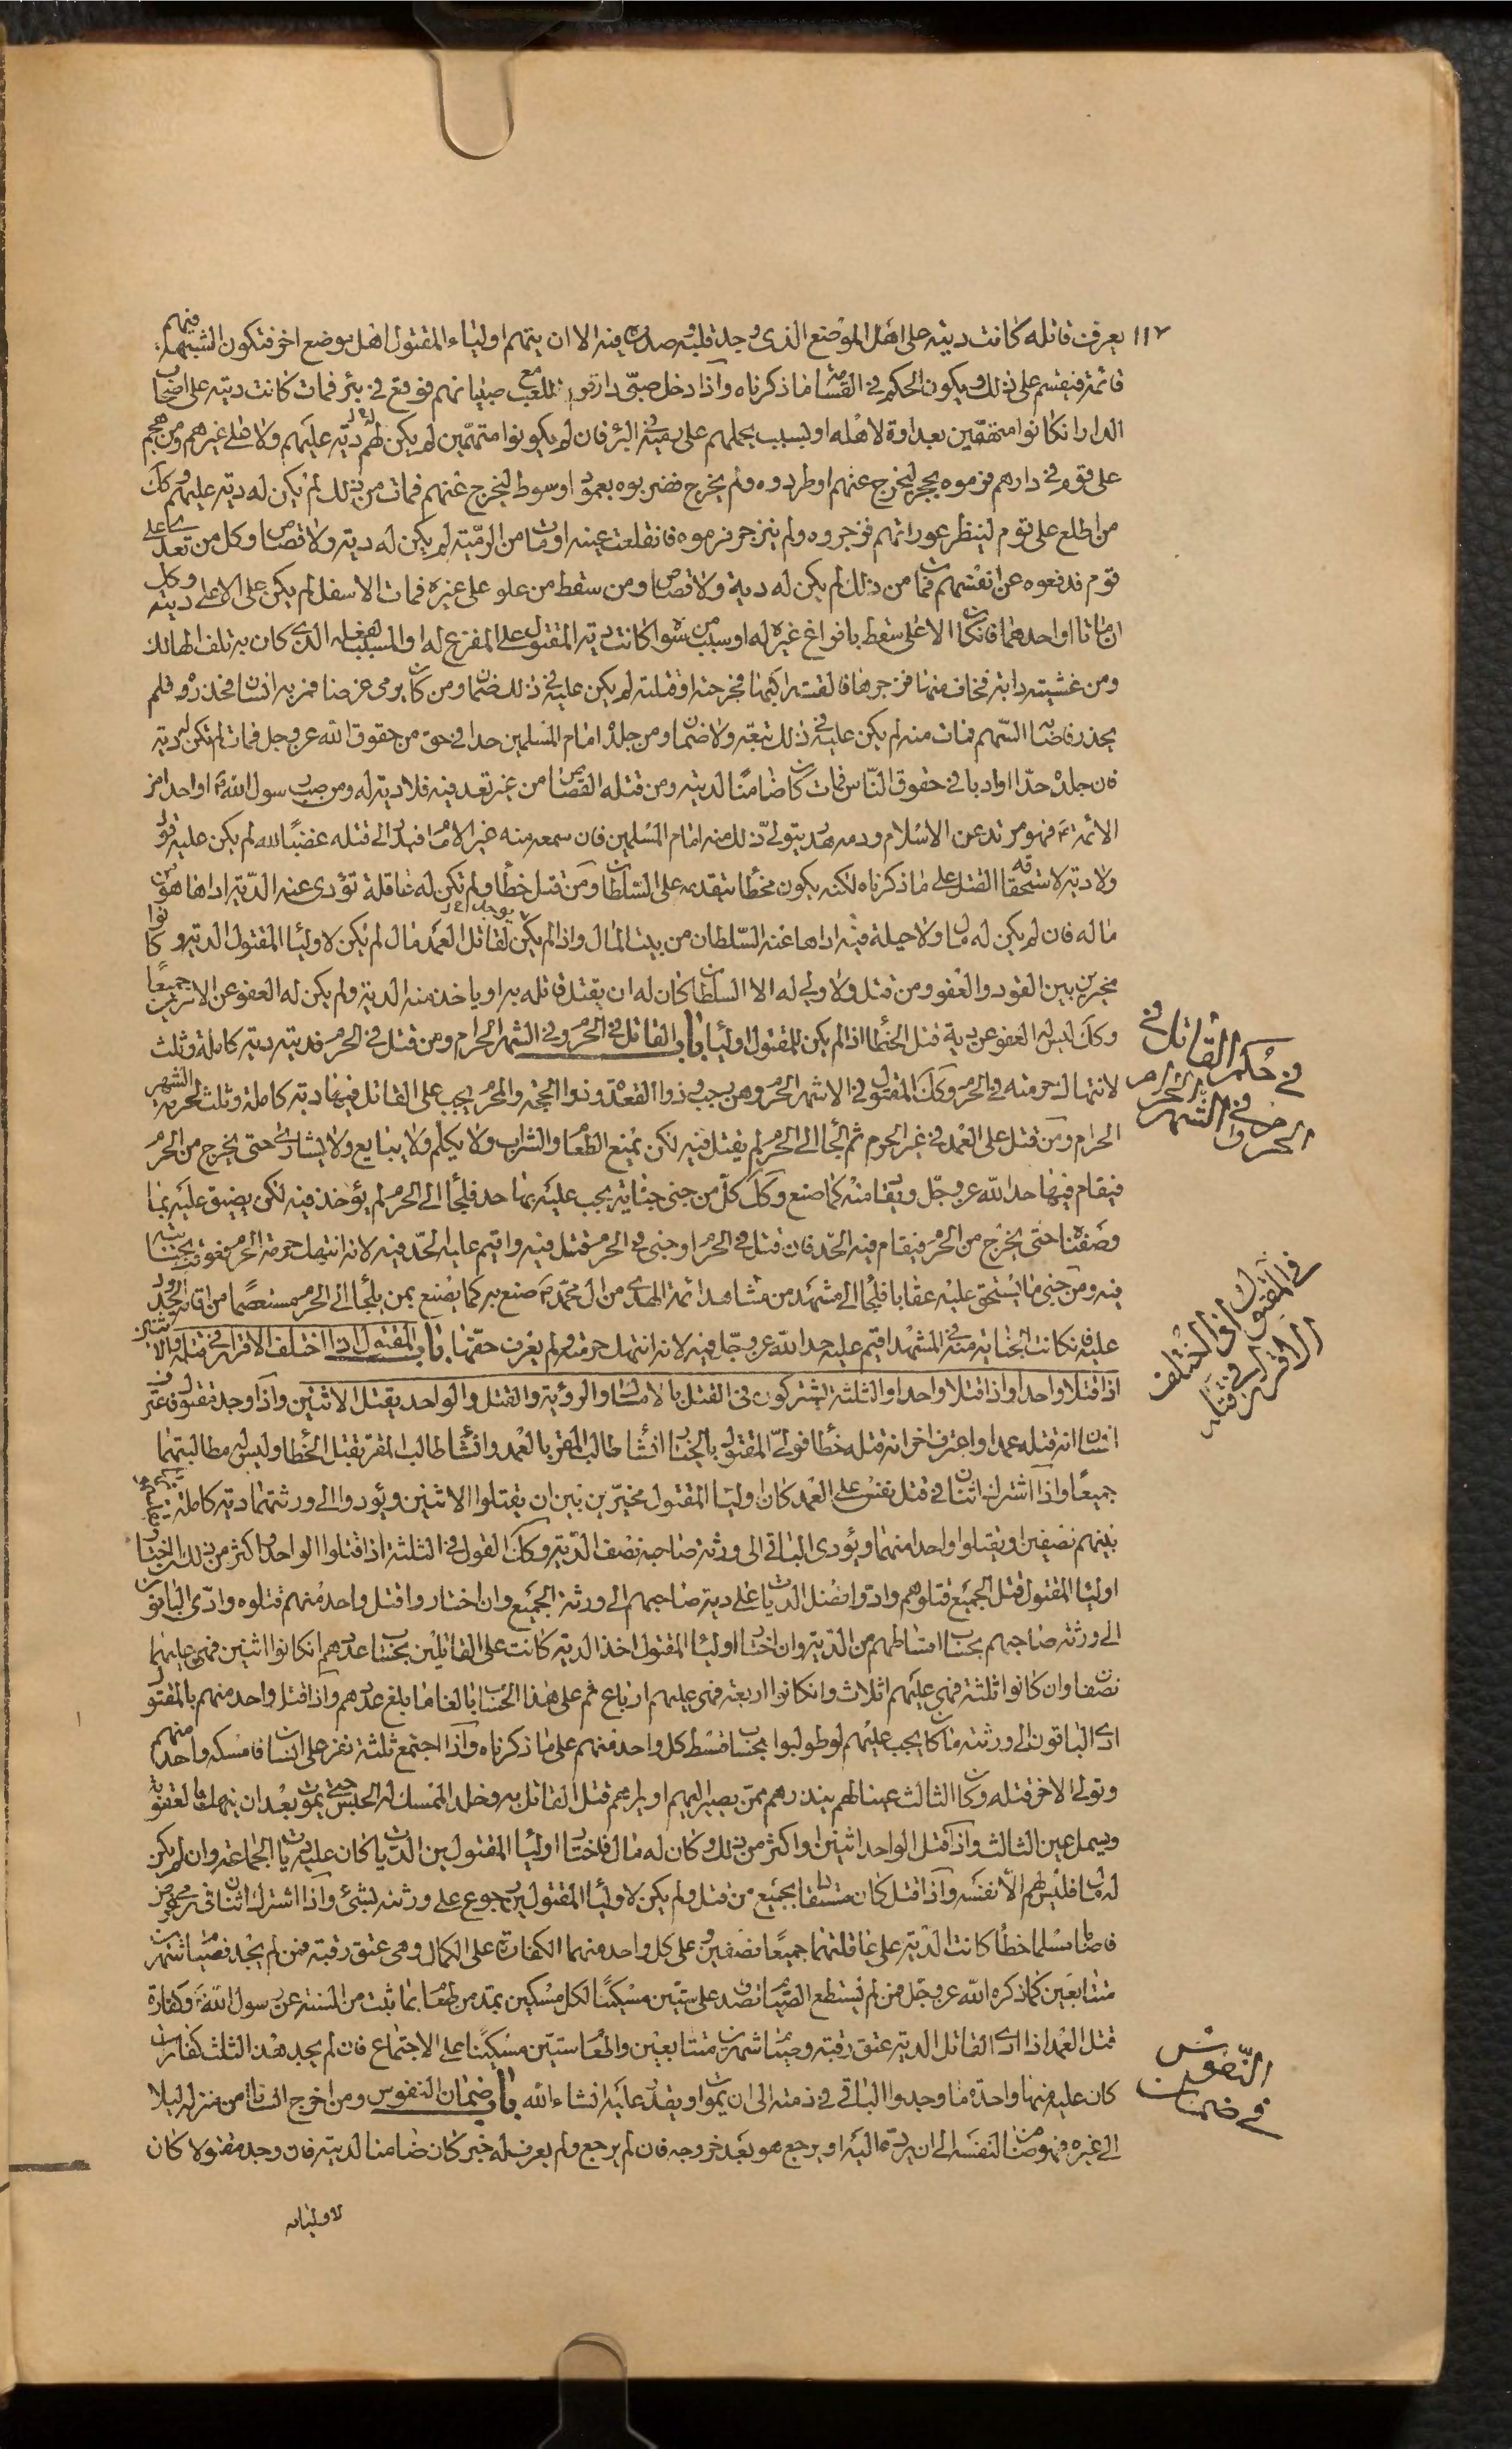 ١١٢
يعرفت قاتله كانت ديته على اهل الموضع الذى وجد قلبه وصدره فيه الا ان يتهم اولياء المقتول اهل موضع اخر فتكون الشبهة فيهم
قائمة فيقسم على ذلك ويكون الحكم فى القسامة ما ذكرناه واذا دخل صبى دار قوم للعب مع صبيانهم فوقع فى بئر فمات كانت ديته على اصحاب
الدار ان كانوا متهمين بعداوة لاهله او لسبب يحملهم على رميه فى البئر فان لم يكونوا متهمين لم يكن لهم ديته عليهم ولا على غيرهم ومن هجم
على قوم فى دارهم فرموه بحجر ليخرج عنهم او طردوه ولم يخرج فضربوه بعمود او سوط ليخرج عنهم فمات من ذلك لم يكن له دية عليهم وكك
من اطلع على قوم لينظر عوراتهم فزجروه ولم ينزجر فرموه فانقلعت عينه او مات من الرمية لم يكن له دية ولا قصاص وكل من تعدى على
قوم فدفعوه عن انفسهم فمات من ذلك لم يكن له دية ولا قصاص ومن سقط من علو على غيره فمات الاسفل لم يكن على الاعلى ديته وكك
ان ماتا او احدهما فان كان الاعلى سقط بافزاغ غيره له او بسبب من سواه كانت دية المقتول على المفزع له او المسبب لفعله الذى كان به تلف الهالك
ومن غشيته دابة فخاف منها فزجرها فالقت راكبها فجرحته او قتلته لم يكن عليه فى ذلك ضمان ومن كان يرمى غرضا فمر به انسان فحذره فلم
يحذر فاصابه السهم فمات منه لم يكن عليه فى ذلك تبعة ولا ضمان ومن جلده امام المسلمين حدا فى حق من حقوق الله عز وجل فمات لم تكن له دية
فان جلده حدا او ادبا فى حقوق الناس فمات كان ضامنا لديته ومن قتله القصاص من غير تعد فيه فلا دية له ومن سب رسول الله ص او احدا من
الائمة ع فهو مرتد عن الاسلام ودمه هدر يتولى ذلك منه امام المسلمين فان سمعه منه غير الامام فبدر الى قتله غضبا لله لم يكن عليه قود
ولا دية لاستحقاقه القتل على ما ذكرناه لكنه يكون مخطئا بتقدمه على السلطان ومن قتل خطأ ولم تكن له عاقلة تؤدى عنه الدية اداها هو من
ماله فان لم يكن له مال ولا حيلة فيه اداها عنه السلطان من بيت المال واذا لم يكن لقاتل العمد مال لم يكن لاولياء المقتول الدية وكانوا
مخيرين بين القود والعفو ومن قتل ولا ولى له الا السلطان كان له ان يقتل قاتله به او ياخذ منه الدية ولم يكن له العفو عن الامرين جميعا
وكك ليس له العفو عن دية قتل الخطأ اذا لم يكن للمقتول اولياء باب القاتل فى الحرم وفى الشهر الحرام ومن قتل فى الحرم فديته دية كاملة وثلث
لانتهاك حرمته فى الحرم وكك المقتول فى الاشهر الحرم وهى رجب وذو القعدة وذو الحجة والمحرم يجب على القاتل فيها دية كاملة وثلث لحرمة الشهر
الحرام ومن قتل على العمد فى غير الحرم ثم لجأ الى الحرم لم يقتل فيه لكن يمنع الطعام والشراب ولا يكلم ولا يبايع ولا يشارى حتى يخرج من الحرم
فيقام فيها حد الله عز وجل ويقاد منه كما صنع وكك كل من جنى جناية يجب عليه بها حد فلجأ الى الحرم لم يؤخذ فيه لكن يضيق عليه بما
وصفناه حتى يخرج من الحرم فيقام فيه الحد فان قتل فى الحرم او جنى فى الحرم قتل فيه واقيم عليه الحد فيه لانه انتهك حرمة الحرم فعوقب بجنايته
فيه ومن جنى ما يستحق عليه عقابا فلجأ الى مشهد من مشاهد ائمة الهدى من ال محمد ع صنع به كما يصنع بمن يلجأ الى الحرم مستعصما من اقامة الحدود
عليه فان كانت الجناية منه فى المشهد اقيم عليه حد الله عز وجل فيه لانه انتهك حرمته ولم يعرف حقها باب المقتول اذا اختلف الاقرار فى قتله والاثنين
اذا قتلا واحدا واذا قتلا واحدا والثلثة يشتركون فى القتل بالامساك والرؤية والقتل والواحد يقتل الاثنين واذا وجد مقتول فاعترف
انسان انه قتله عمدا واعترف اخر انه قتله خطأ فولى المقتول بالخيار ان شاء طالب المقر بالعمد وان شاء طالب المقر بقتل الخطأ وليس له مطالبتهما
جميعا واذا اشترك اثنان فى قتل نفس على العمد كان اولياء المقتول مخيرين بين ان يقتلوا الاثنين ويؤدوا الى ورثتهما دية كاملة
بينهم نصفين او يقتلوا واحدا منهما ويؤدى الباقى الى ورثة صاحبه نصف الدية وكك القول فى الثلثة اذا قتلوا الواحد او اكثر من ذلك ان اختار
اولياء المقتول قتل الجميع قتلوهم وادوا فضل الديات على دية صاحبهم الى ورثة الجميع وان اختاروا قتل واحد منهم قتلوه وادى الباقون
الى ورثة صاحبهم بحساب اقساطهم من الدية وان اختار اولياء المقتول اخذ الدية كانت على القاتلين بحساب عددهم ان كانوا اثنين فهى عليهما
نصفان وان كانوا ثلثة فهى عليهم اثلاث وان كانوا اربعة فهى عليهم ارباع ثم على هذا الحساب بالغا ما بلغ عددهم واذا قتل واحد منهم بالمقتول
ادى الباقون الى ورثته ما كان يجب عليهم لو طولبوا بحساب قسط كل واحد منهم على ما ذكرناه واذا اجتمع ثلثة نفر على انسان فامسكه واحد منهم
وتولى الاخر قتله وكان الثالث عينا لهم ينذرهم ممن يصير اليهم او يراهم قتل القاتل به وخلد الممسك له الحبس حتى يموت بعد ان ينهك بالعقوبة
ويسمل عين الثالث واذا قتل الواحد اثنين او اكثر من ذلك وكان له مال فاختار اولياء المقتولين الديات كان عليه ديات الجماعة وان لم يكن
له مال فليس لهم الا نفسه واذا قتل كان مستقادا بجميع من قتل ولم يكن لاولياء المقتولين رجوع على ورثته بشئ واذا اشترك اثنان فى رمى غرض
فاصابا مسلما خطأ كانت الدية على عاقلتهما جميعا نصفين وعلى كل واحد منهما الكفارة على الكمال وهى عتق رقبة فمن لم يجد فصيام شهرين
متتابعين كما ذكره الله عز وجل فمن لم يستطع الصيام تصدق على ستين مسكينا لكل مسكين بمد من طعام بما ثبت من السنة عن رسول الله ص وكفارة
قتل العمد اذا ادى القاتل الدية عتق رقبة وصيام شهرين متتابعين واطعام ستين مسكينا على الاجتماع فان لم يجد هذه الثلث كفارات
كان عليه منها واحدة ما وجد والباقى فى ذمته الى ان يموت او يقدر عليه انشاء الله باب ضمان النفوس ومن اخرج انسانا من منزله ليلا
الى غيره فهو ضامن لنفسه الى ان يرده اليه او يرجع هو بعد خروجه فان لم يرجع ولم يعرف له خبر كان ضامنا لديته فان وجد مقتولا كان
لاوليائه
فى حكم القاتل فى
الحرم وفى الشهر الحرام
فى المقتول اذا اختلف
الاقرار فى قتله
فى ضمان
النفوس